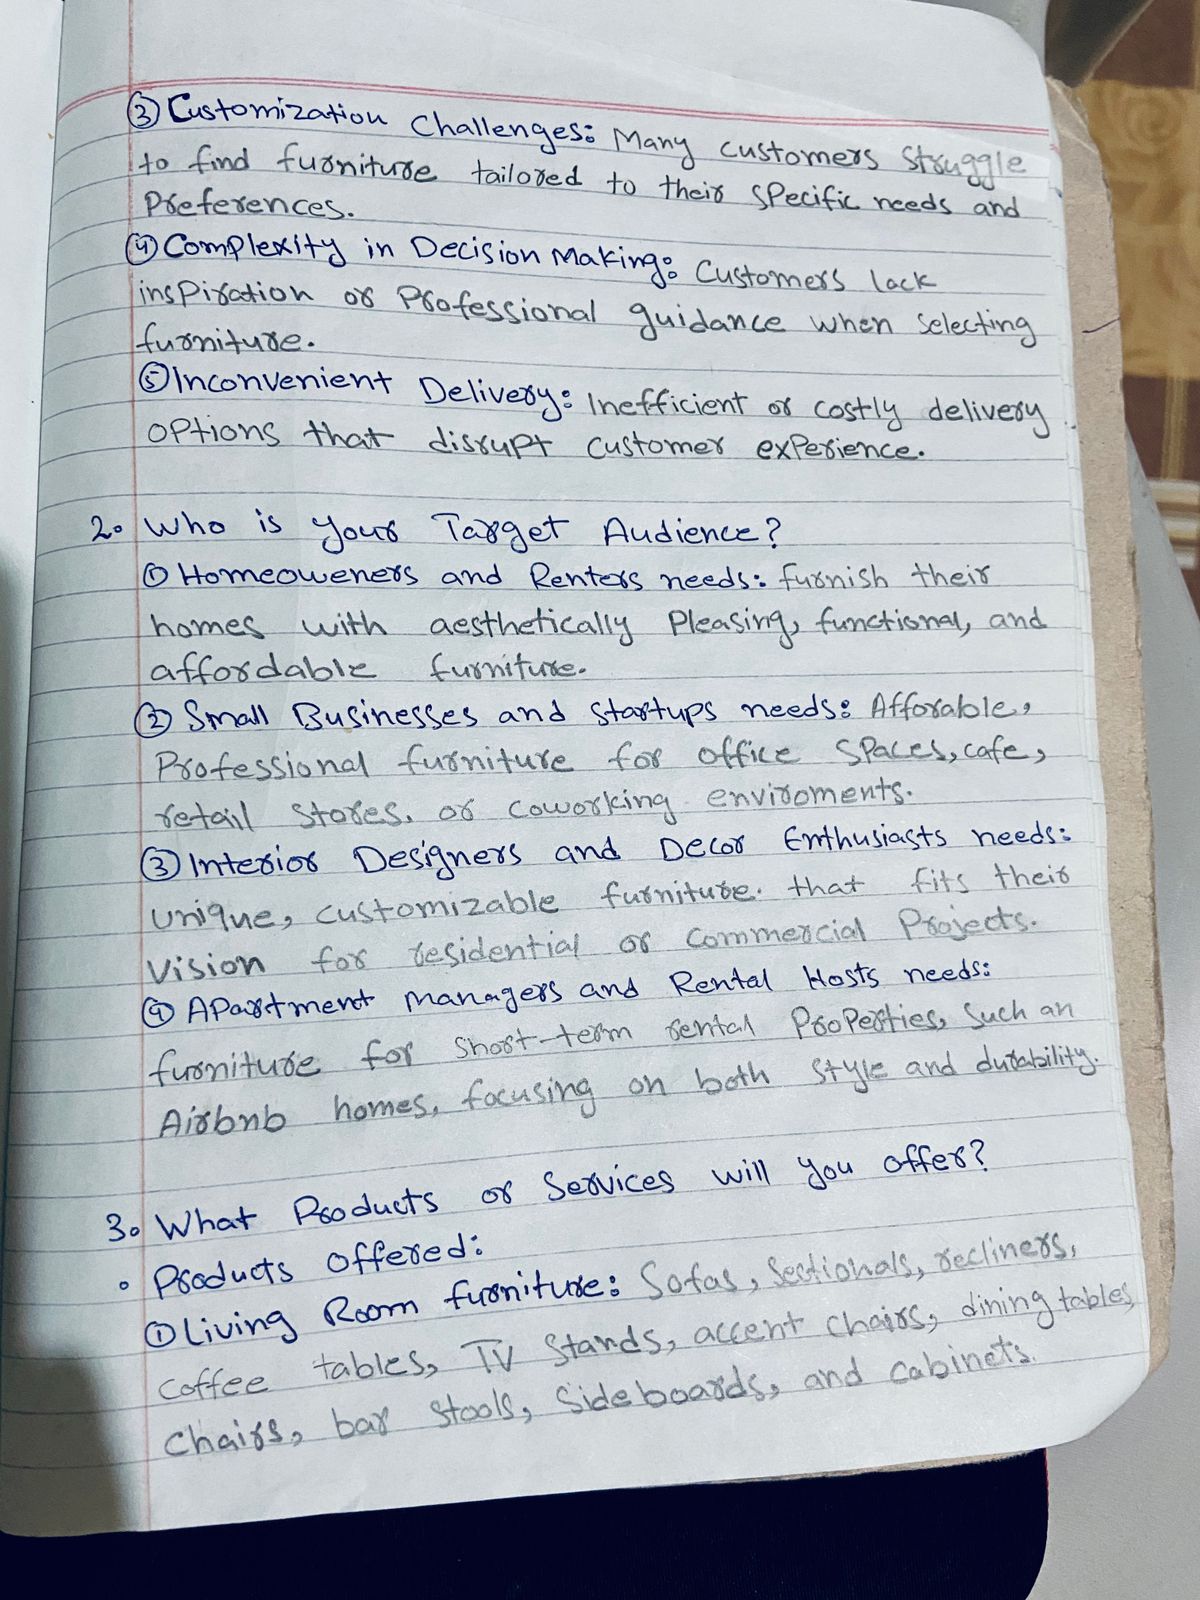 ③ Customization Challenges: Many customers struggle
to find furniture tailored to their specific needs and
Preferences.
④ Complexity in Decision Making: Customers lack
inspiration or Professional guidance when selecting
furniture.
⑤ Inconvenient Delivery: Inefficient or costly delivery
options that disrupt customer experience.
2. Who is your Target Audience?
① Homeoweners and Renters needs: furnish their
homes with aesthetically Pleasing, functional, and
affordable furniture.
② Small Businesses and Startups needs: Afforable,
Professional furniture for office spaces, cafe,
retail stores, or coworking enviroments.
③ Interior Designers and Decor Enthusiasts needs:
unique, customizable furniture. that fits their
vision for residential or commercial Projects.
④ Apartment managers and Rental Hosts needs:
furniture for short-term rental Properties, such an
Airbnb homes, focusing on both style and durability.
3. What Products or Services will you offer?
• Products offered:
① Living Room furniture: Sofas, Sectionals, recliners,
coffee tables, TV stands, accent chairs, dining tables,
chairs, bar stools, Sideboards, and cabinets.